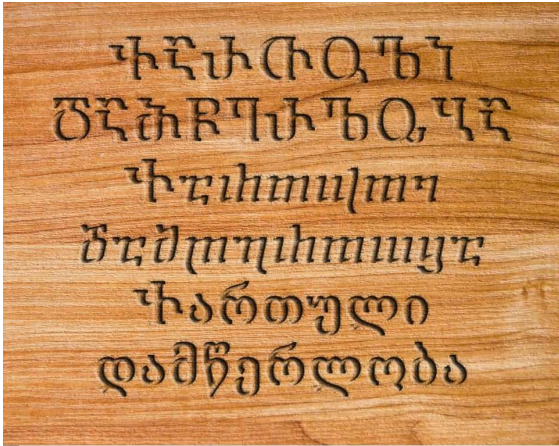 ႵႠႰႧႳႪႨ
ႣႠႫႼႤႰႪႭႡႠ
Ⴕⴀⴐⴇⴓⴊⴈ
Ⴃⴀⴋⴜⴄⴐⴊⴍⴁⴀ
Ⴕართული
დამწერლობა